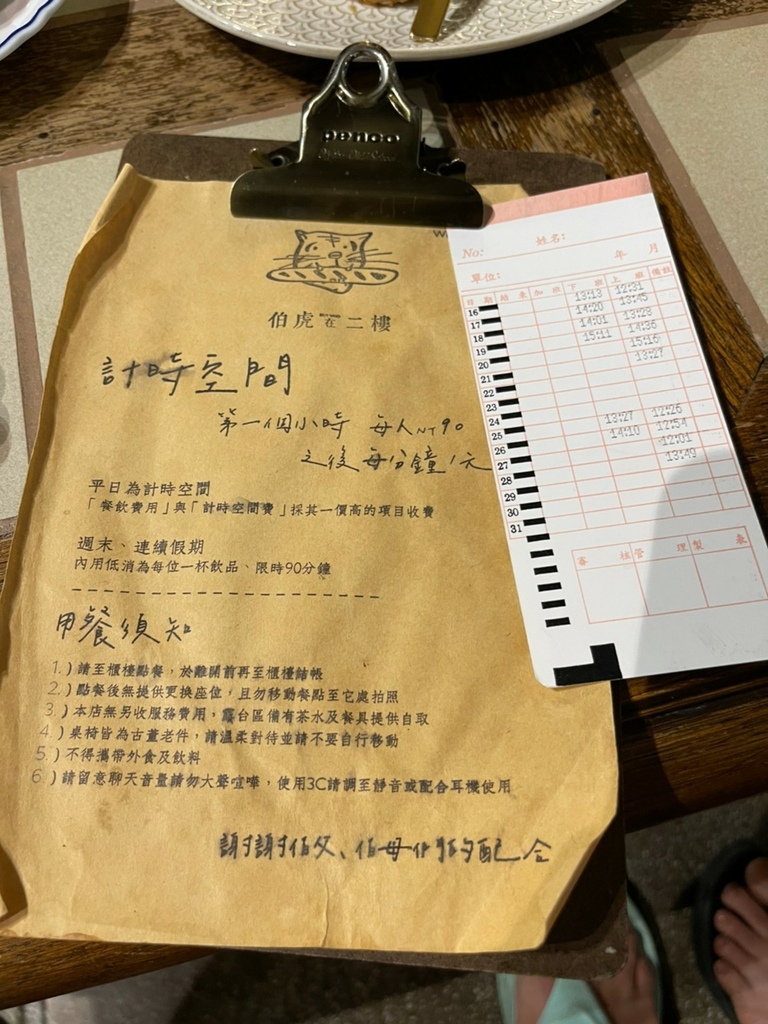 penco
伯虎在二樓
計時空間
第一個小時 每人NT90
之後每分鐘1元
平日為計時空間
「餐飲費用」與「計時空間費」採其一價高的項目收費
週末、連續假期
內用低消為每位一杯飲品、限時90分鐘
用餐須知
1.)請至櫃檯點餐，於離開前再至櫃檯結帳
2.)點餐後無提供更換座位，且勿移動餐點至它處拍照
3.)本店無另收服務費用，露台區備有茶水及餐具提供自取
4.)桌椅皆為古董老件，請溫柔對待並請不要自行移動
5.)不得攜帶外食及飲料
6.)請留意聊天音量請勿大聲喧嘩，使用3C請調至靜音或配合耳機使用
謝謝伯父、伯母们的配合
No: 姓名:
年 月
單位:
日期 結束 加班 下班 上班 備註
16 13:13 12:31
17 14:20 13:45
18 14:01 13:28
19 15:11 14:36
20 15:16
21 13:27
22
23
24 13:27 12:26
25 14:10 12:54
26 12:01
27 13:49
28
29
30
31
審核 管理 製表